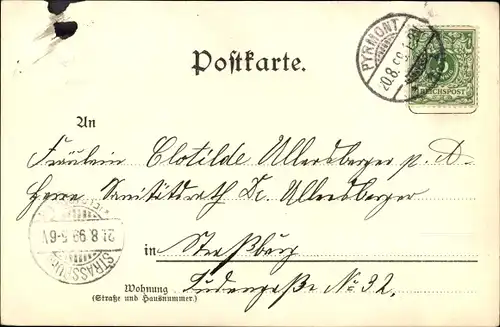 PYRMONT
20.8.99
5
REICHSPOST
Postkarte.
An
Fräulein Clotilde Ullersberger p. A.
Herrn Sanitätsrath Dr. Ullersberger
in Straßburg
21.8.99.5-6V
STRASSBURG
Wohnung
(Straße und Hausnummer.)
No 32.